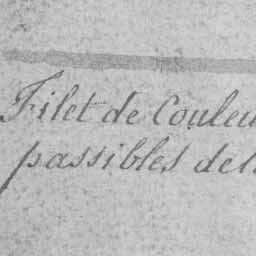 Filet de Couleu
passibles del